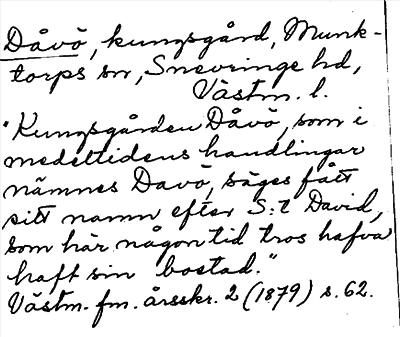 Dåvö, kungsgård, Munk-
torps sn, Snevringe hd,
Västm. l.
"Kungsgården Dåvö, som i
medeltidens handlingar
nämnes Davö, säges fått
sitt namn efter S:t David,
som här någon tid tros hafva
haft sin bostad."
Västm. fm. årsskr. 2 (1879) s. 62.